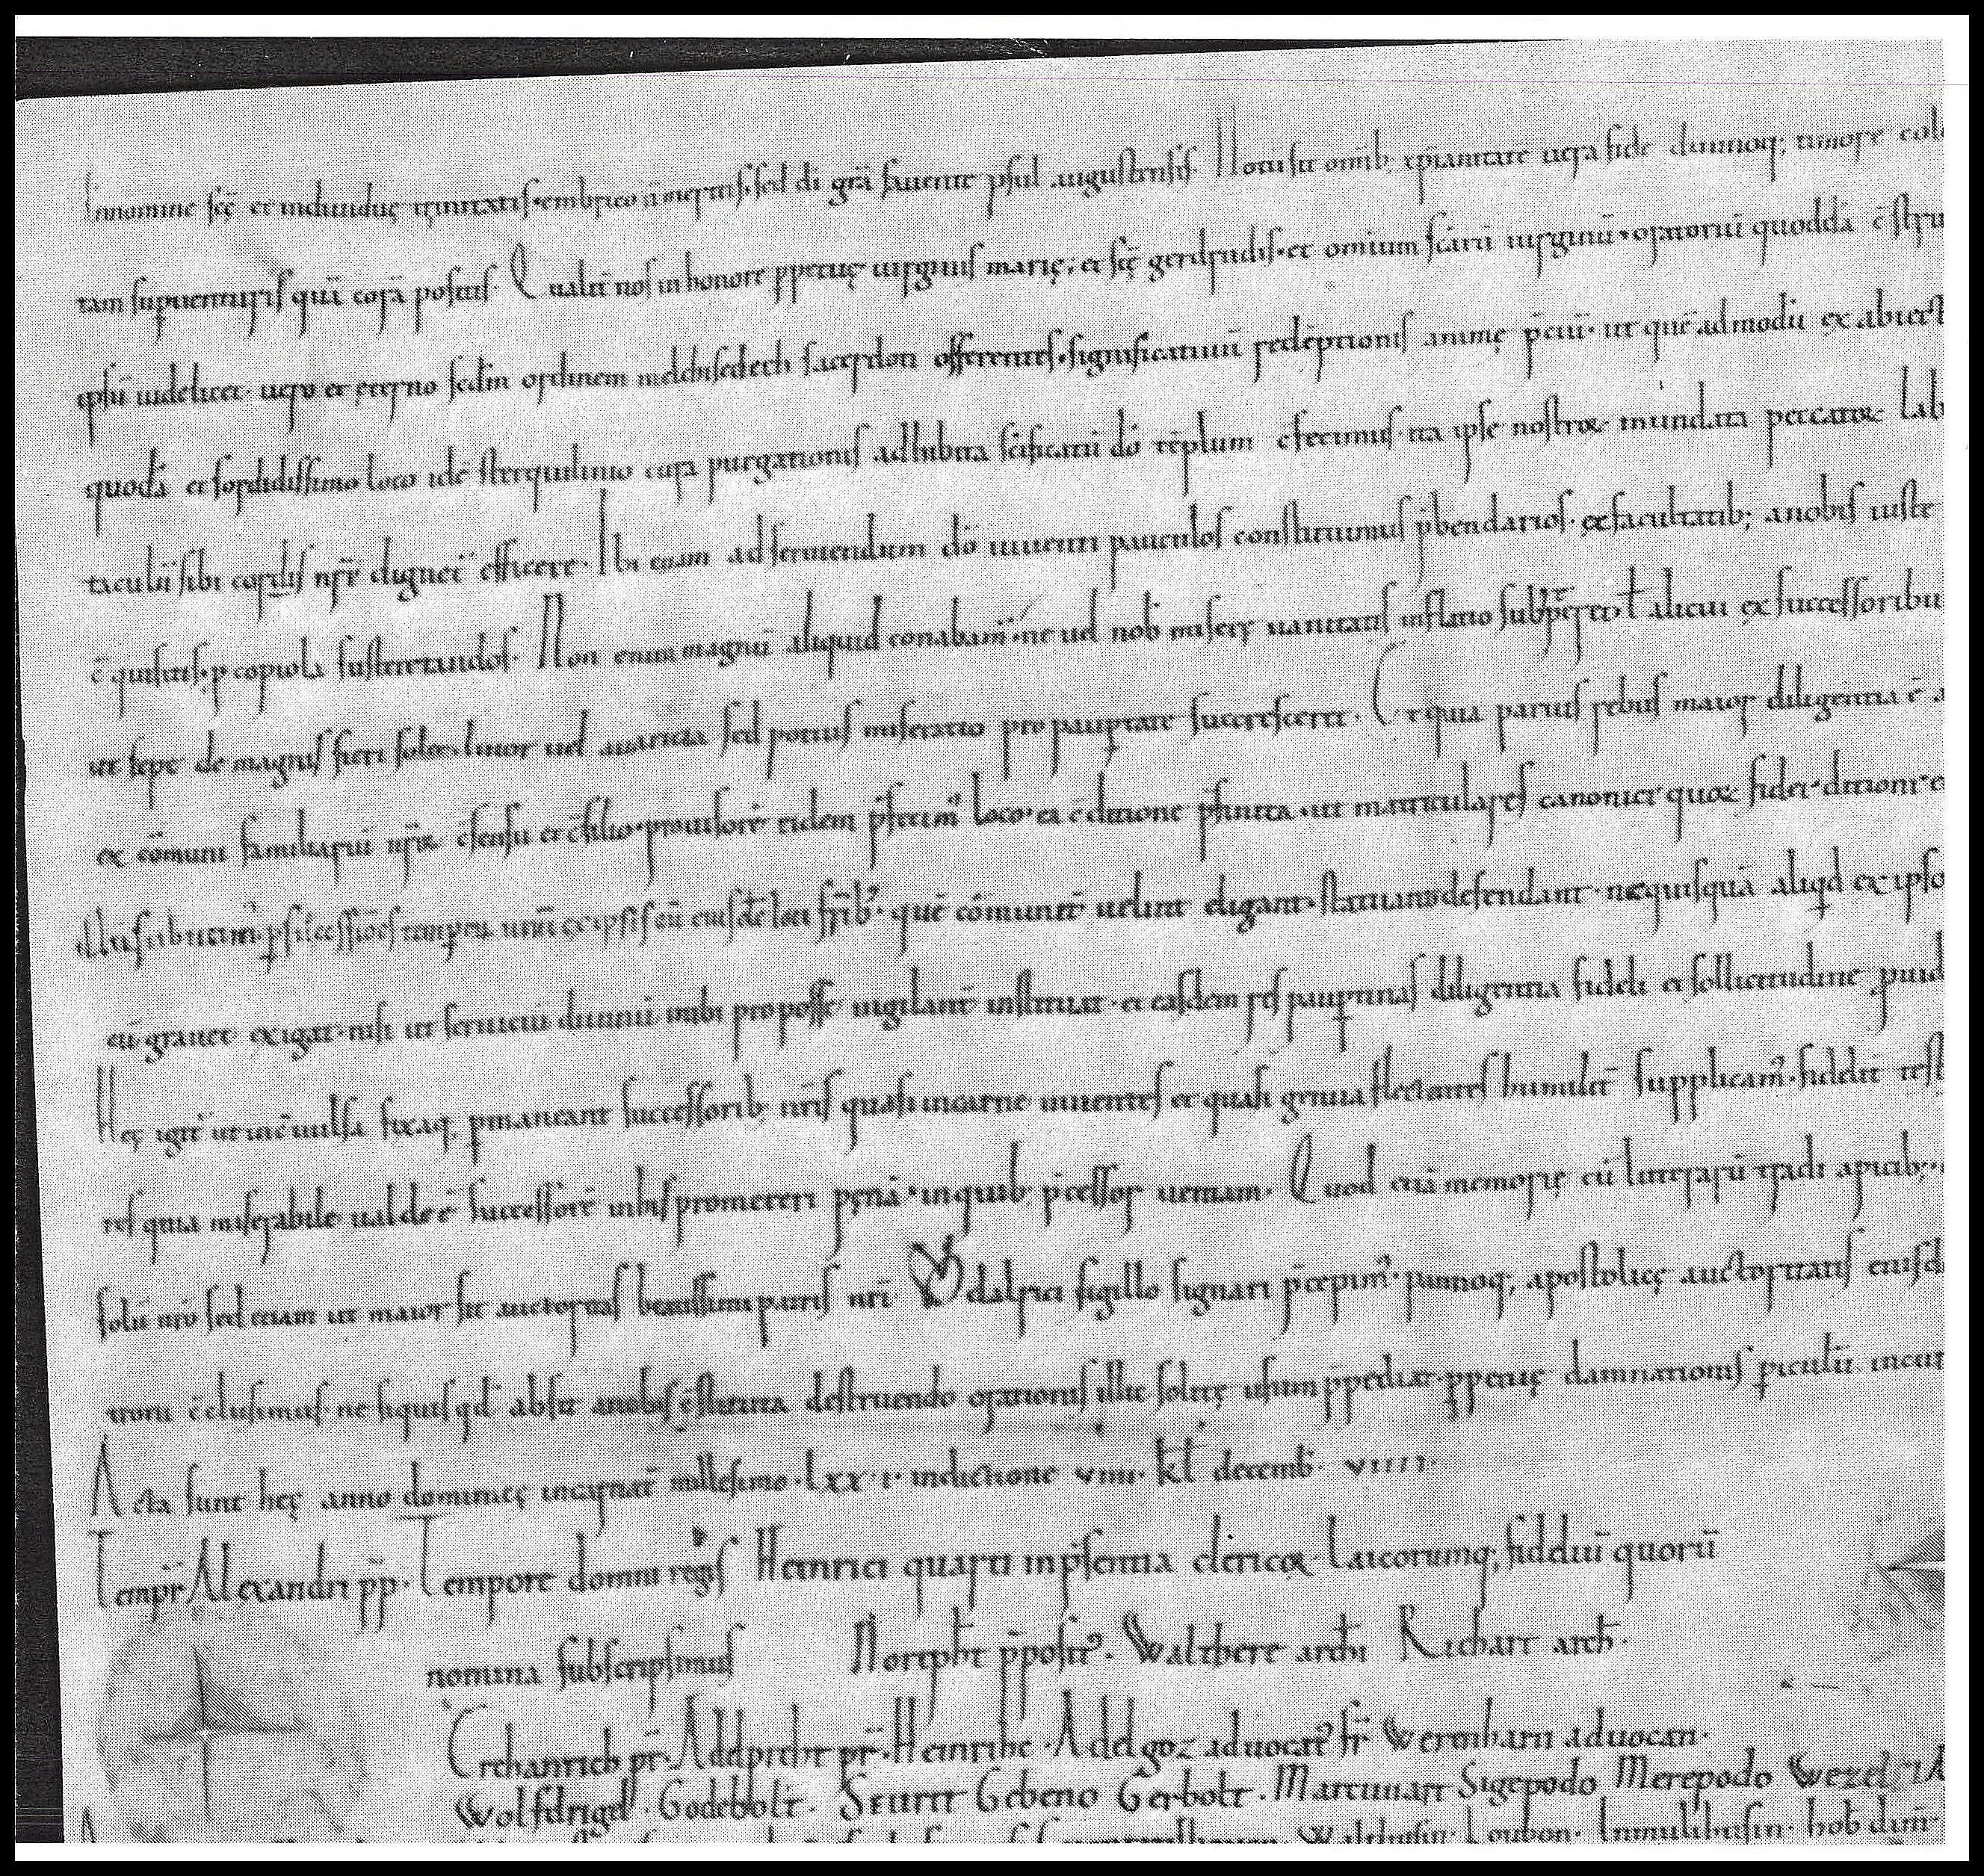 Innomine scę et indiuiduę trinitatis. embrico ī meritis. sed dī grā fauente psul augustensis. Notū sit omīb; xp̄ianitatē uera fide diuinoq; timore col
tam superuenturis quā corā positis. Qualit̄ nos in honore ppetuę uirginis marię. et scę gerdrudis. et omium scārū uirginū. oratoriū quoddā c̄stru
ipsū uidelicet. uero et ęterno scdm ordinem melchisedech sacerdoti offerentes. significatiuū redēptionis animę p̄ciū. ut quē ad modū ex abiect
quodā et sordidissimo loco idē sterquilinio cura purgationis adhibita scīficatū dō tēplum c̄fecimus. ita ipse nostroꝝ mundata peccatoꝝ lab
taculū sibi cordis nr̄i dignet̄ efficere. Ibi etiam ad seruiendum dō uiuenti pauculos constituimus p̄bendarios. ex facultatib; a nobis iuste
c̄quisitis. p copiola sustentandos. Non enim magnū aliquid conabam̄. ne uel nob̄ miserę uanitatis inflatio subrep̄eret ł alicui ex successoribu
ut sepe de magnis fieri solet. liuor uel auaricia sed potius miseratio pro paup̱tate succresceret. Et quia paruis rebus maior diligentia ē
ex cōmuni familiariū nr̄oꝝ c̄sensu et c̄silio. prouisorē eidem p̄fecim᷒ loco. ea c̄ditione p̄finita. ut matriculares canonici quoꝝ fidei. ditioni
illius ubi unū ex ipsis cū eiusdē loci fr̄ib᷒. quē cōmunit̄ uelint eligant. statuant. defendant. nec quisquā aliqd ex ipso
cū grauet exigat. nisi ut seruiciū diuinū inibi pro posse uigilant̄ instituat. et easdem res paup̱tinas diligentia fideli et sollicitudine puid
Hęc igit̄ ut inc̄uulsa fixaq; pmaneant successorib; nr̄is quasi in carne uiuentes et quasi genua flectentes humilit̄ supplicam᷒. fidelit̄ test
res quia miserabile ualde ē successorē in his promereri pęnā. in quib; p̄cessor ueniam. Quod etiā memorię cū litterarū tradi apicib;
solū nr̄o sed etiam ut maior sit auctoritas beatissimi patris nr̄i Ŏdalrici sigillo signari p̄cepim᷒. bannoq; apostolicę auctoritatis eiusd
urorū c̄clusimus. ne siquis qd absit a nobis c̄stituta destruendo orationis illic solitę usum p̄pediat. ppetuę damnationis piculū incur
Acta sunt hęc anno dominicę incarnat̄ millesimo. lxx. i. indictione viiii. kł decemb̄. viiii.
Tempr̄ Alexandri pp. Tempore domni regis Heinrici quarti in p̄sentia clericoꝝ. laicorumq; fideliū quorū
nomina subscripsimus Norepht p̄posit᷒. Walthere archi Richart arch.
Erchanrich pr̄. Adelpreht pr̄. Heinrihc. Adelgoz aduocat᷒ fr̄ Werinharii aduocati.
Wolfdrigel. Godebolt. Seurit Gebeno Gerbolt. Marcuuart Sigepodo Merepodo Wezel
Waltehusin. Loubon. Inmulihusin. hob dim.